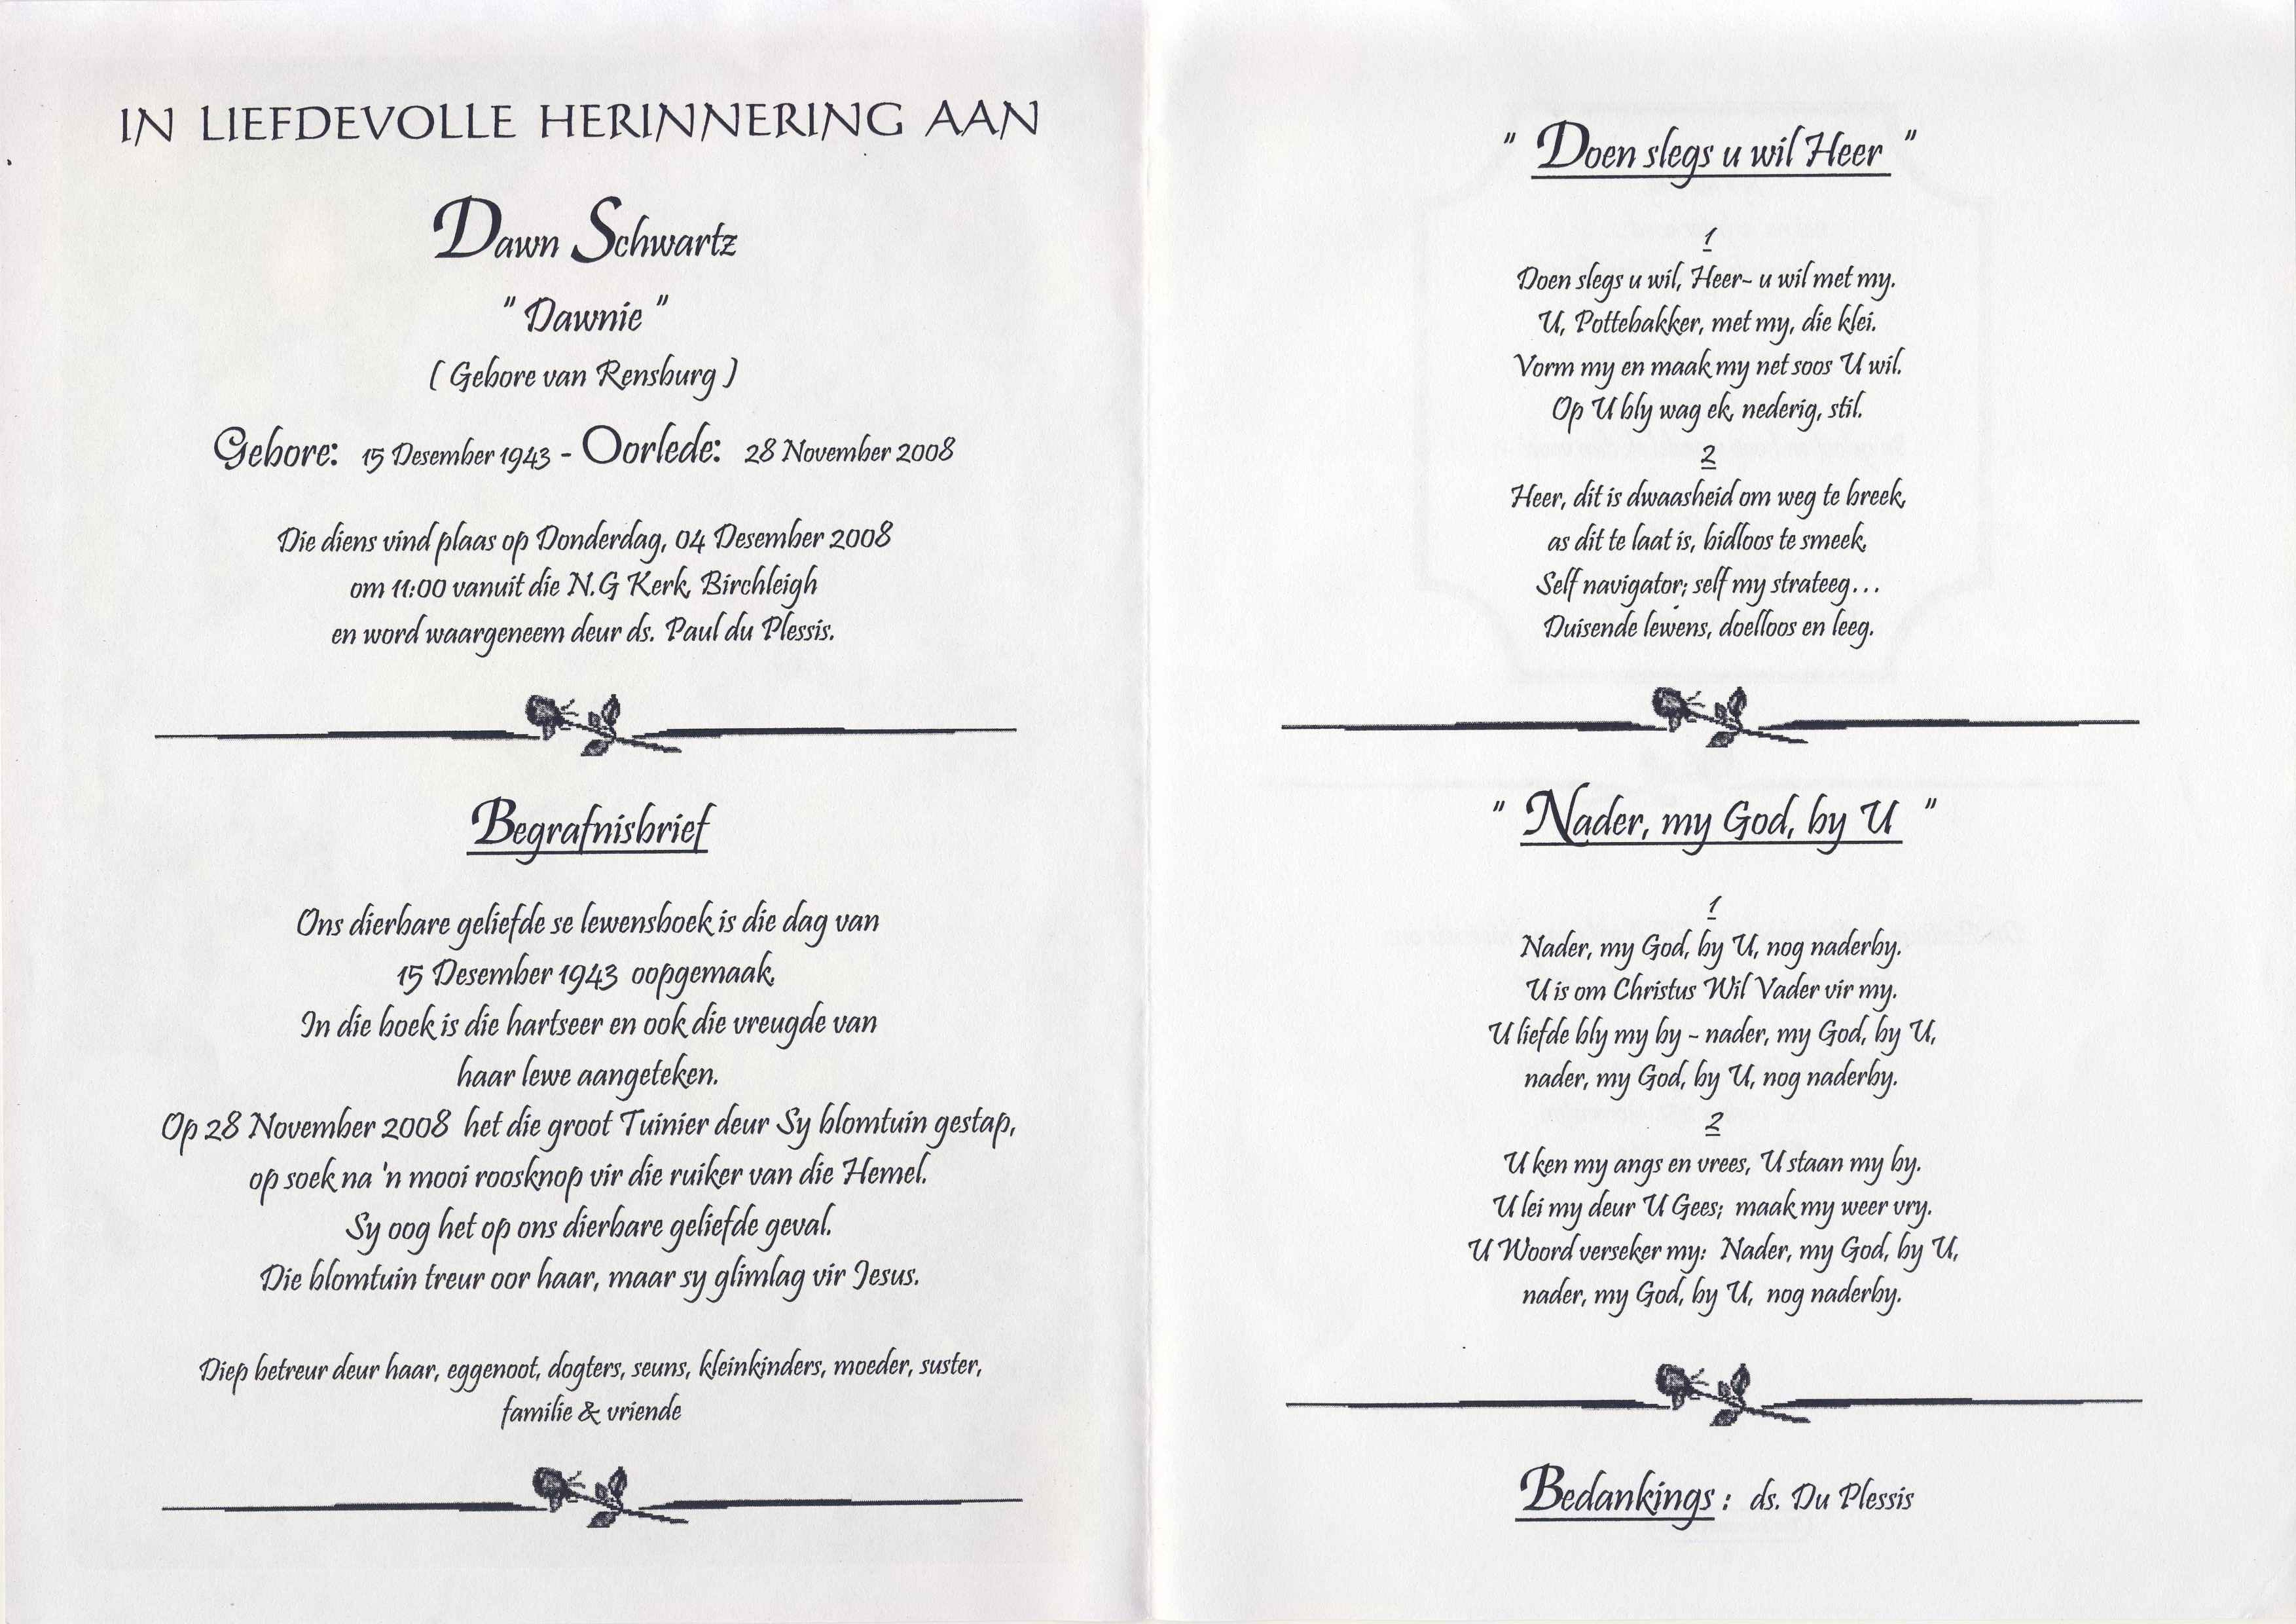 IN LIEFDEVOLLE HERINNERING AAN
Dawn Schwartz
" Dawnie "
( Gebore van Rensburg )
Gebore: 15 Desember 1943 - Oorlede: 28 November 2008
Die diens vind plaas op Donderdag, 04 Desember 2008
om 11:00 vanuit die N.G Kerk, Birchleigh
en word waargeneem deur ds. Paul du Plessis.
Begrafnisbrief
Ons dierbare geliefde se lewensboek is die dag van
15 Desember 1943 oopgemaak.
In die boek is die hartseer en ook die vreugde van
haar lewe aangeteken.
Op 28 November 2008 het die groot Tuinier deur Sy blomtuin gestap,
op soek na 'n mooi roosknop vir die ruiker van die Hemel.
Sy oog het op ons dierbare geliefde geval.
Die blomtuin treur oor haar, maar sy glimlag vir Jesus.
Diep betreur deur haar, eggenoot, dogters, seuns, kleinkinders, moeder, suster,
familie & vriende
" Doen slegs u wil Heer "
1
Doen slegs u wil, Heer- u wil met my.
U, Pottebakker, met my, die klei.
Vorm my en maak my net soos U wil.
Op U bly wag ek, nederig, stil.
2
Heer, dit is dwaasheid om weg te breek,
as dit te laat is, bidloos te smeek,
Self navigator; self my strateeg...
Duisende lewens, doelloos en leeg.
" Nader, my God, by U "
1
Nader, my God, by U, nog naderby.
U is om Christus Wil Vader vir my.
U liefde bly my by - nader, my God, by U,
nader, my God, by U, nog naderby.
2
U ken my angs en vrees, U staan my by.
U lei my deur U Gees; maak my weer vry.
U Woord verseker my: Nader, my God, by U,
nader, my God, by U, nog naderby.
Bedankings : ds. Du Plessis